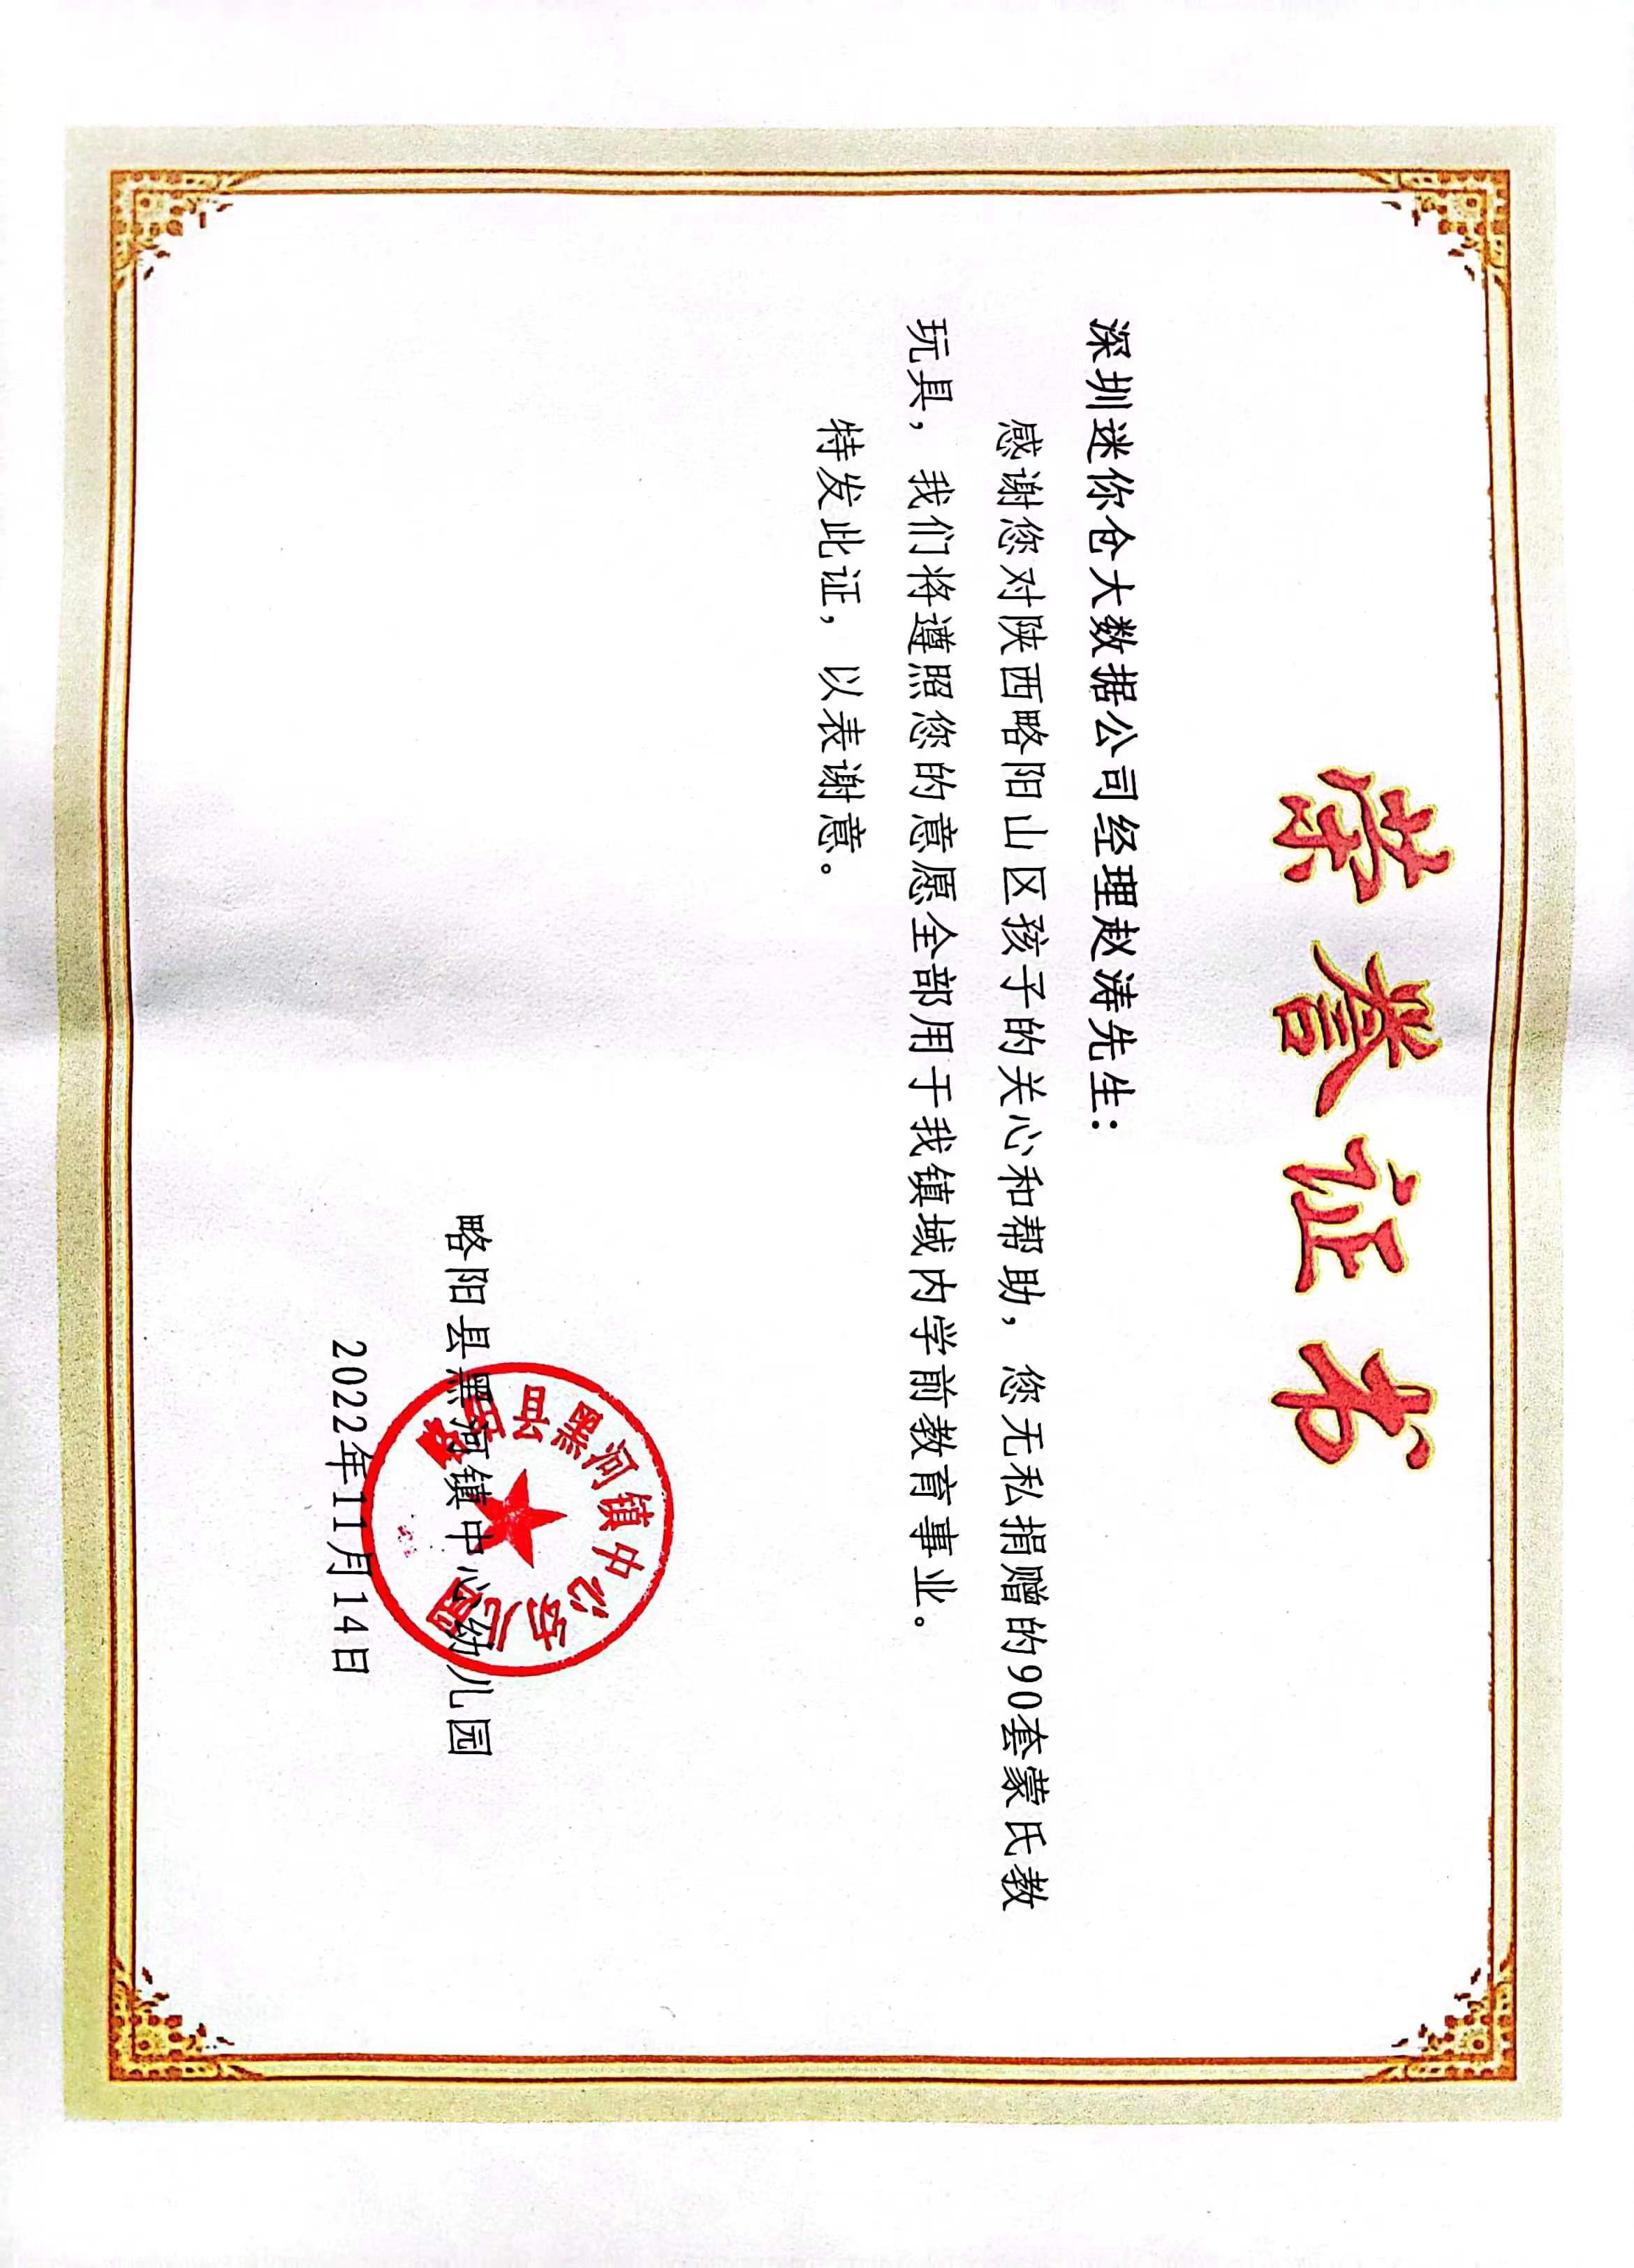 荣誉证书
深圳迷你仓大数据公司经理赵涛先生：
感谢您对陕西略阳山区孩子的关心和帮助，您无私捐赠的90套蒙氏教
玩具，我们将遵照您的意愿全部用于我镇域内学前教育事业。
特发此证，以表谢意。
略阳县黑河镇中心幼儿园
2022年11月14日
略阳县黑河镇中心幼儿园